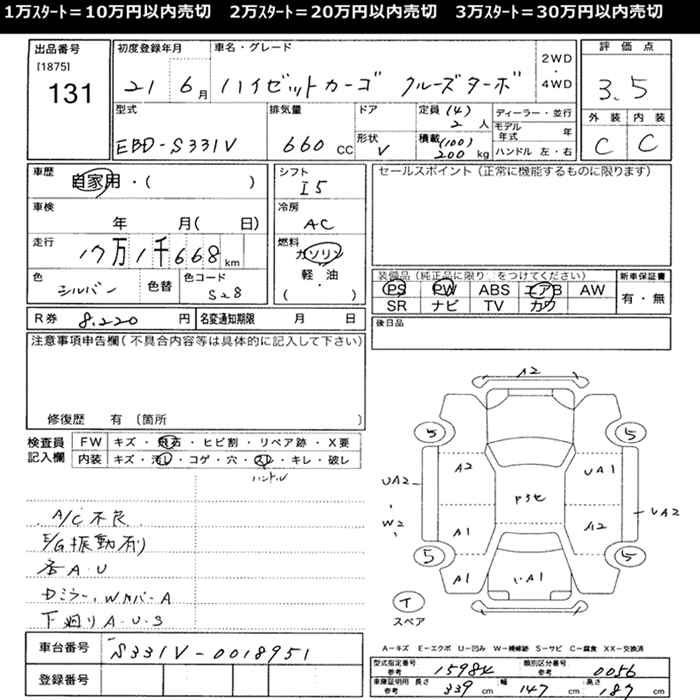 1万ｽﾀｰﾄ＝10万円以内売切　2万ｽﾀｰﾄ＝20万円以内売切　3万ｽﾀｰﾄ＝30万円以内売切
出品番号
[1875]
131
初度登録年月
21 6月
車名・グレード
ハイゼットカーゴ クルーズターボ
2WD
・
4WD
評価点
3.5
外装 内装
C C
型式
EBD-S331V
排気量
660 CC
ドア
形状
V
定員 (4)
2 人
積載 (100)
200 kg
ディーラー・並行
モデル年式 年
ハンドル 左・右
車歴
自家用・( )
車検
年 月( 日)
走行
17万1千668km
色
シルバー
色替
色コード
S28
シフト
I5
冷房
AC
燃料
ガソリン
軽・油
( )
セールスポイント(正常に機能するものに限ります)
装備品(純正品に限り をつけてください)
PS PW ABS エアB AW
SR ナビ TV カワ
新車保証書
有・無
後日品
R券 8,220 円
名変通知期限 月 日
注意事項申告欄(不具合内容等は具体的に記入して下さい)
修復歴 有 〔箇所
検査員記入欄
FW キズ・飛石・ヒビ割・リペア跡・X要
内装 キズ・汚レ・コゲ・穴・スレ・キレ・破レ
ハンドル
A/C不良
E/G振動有り
各A.U
ドミラー、WカバーA
下廻りA.U.S
車台番号 S331V-0018951
登録番号
A2
5 5
A2 UA1
UA2
W2
Pタモ
UA2
A1 A2
5 5
A1
イ
スペア
A－キズ E－エクボ U－凹み W－補修跡 S－サビ C－腐食 XX－交換済
型式指定番号 参考 15984 類別区分番号 参考 0056
車庫証明用 参考 長さ 339 cm 幅 147 cm 高さ 187 cm